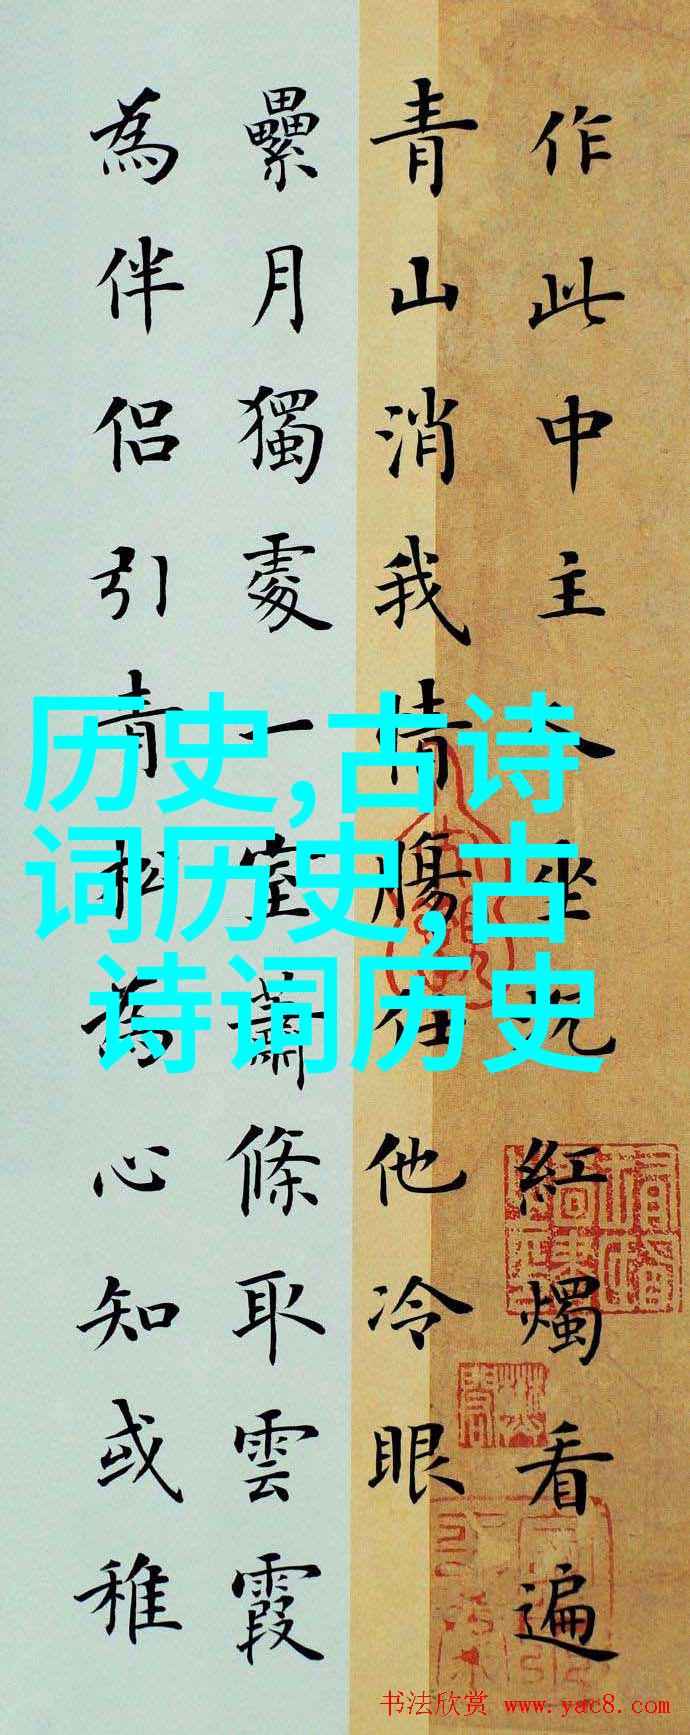 作此中主人坐紅燭看遍
青山消我情腸任他冷眼
纍月獨處一室蕭條取雲霞
為伴侶引青松為心知或稚
历史,古诗
词历史,古
诗词历史
书法欣赏 www.yac8.com